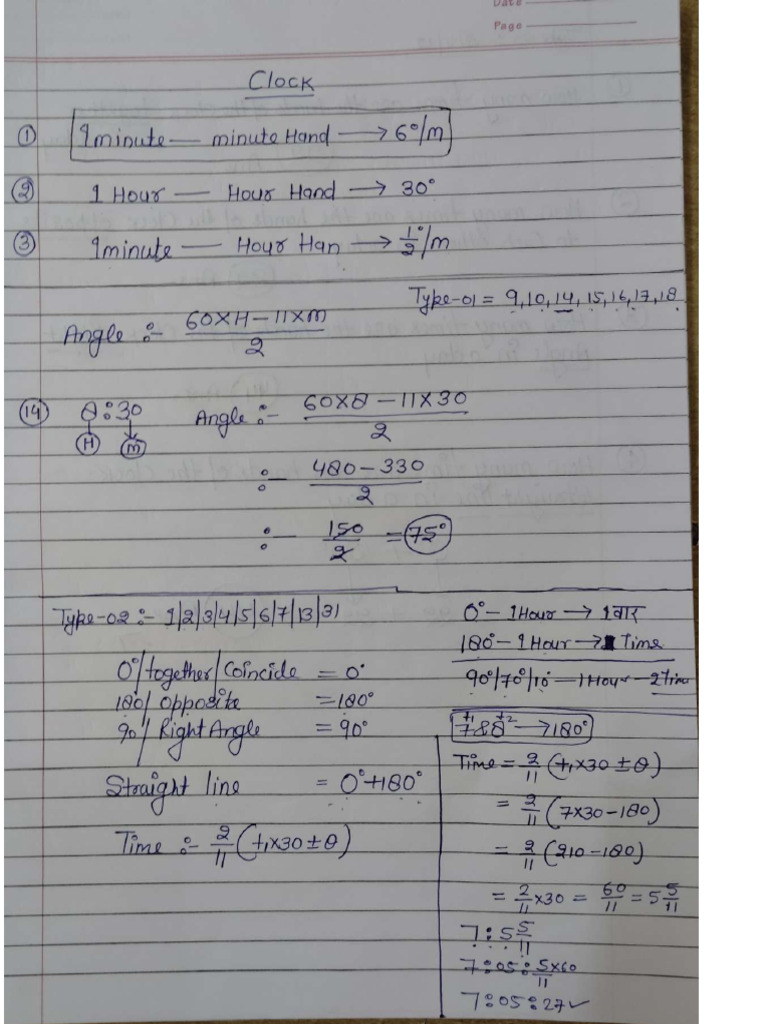 Date
Page
Clock
① 1minute — minute Hand → 6°/m
② 1 Hour — Hour Hand → 30°
③ 1minute — Hour Han → 1/2°/m
Type-01 = 9,10,14,15,16,17,18
Angle :- 60×H-11×m/2
⑭ 8:30 Angle :- 60×8-11×30/2
H m
:- 480-330/2
:- 150/2 = 75°
Type-02 :- 1|2|3|4|5|6|7|13|31
0°/together/Coincide = 0°
180/ opposite = 180°
90/ Right Angle = 90°
Straight line = 0°+180°
Time :- 2/11 (t1×30±θ)
0° - 1Hour → 1वार
180° - 1 Hour → 1 Time
90°/70°/10° — 1 Hour — 2 Time
t1 t2
7 & 8 → 180°
Time = 2/11 (t1×30±θ)
= 2/11 (7×30-180)
= 2/11 (210-180)
= 2/11 ×30 = 60/11 = 5 5/11
7:5 5/11
7:05: 5×60/11
7:05:27 ✓